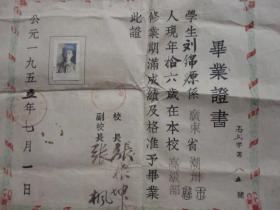 畢業證書
學生劉綿源係廣東省潮州市縣
人現年拾六歲在本校高級部
修業期滿成績及格准予畢業
此證
校長張
副校長張楓
公元一九五五年七月一日